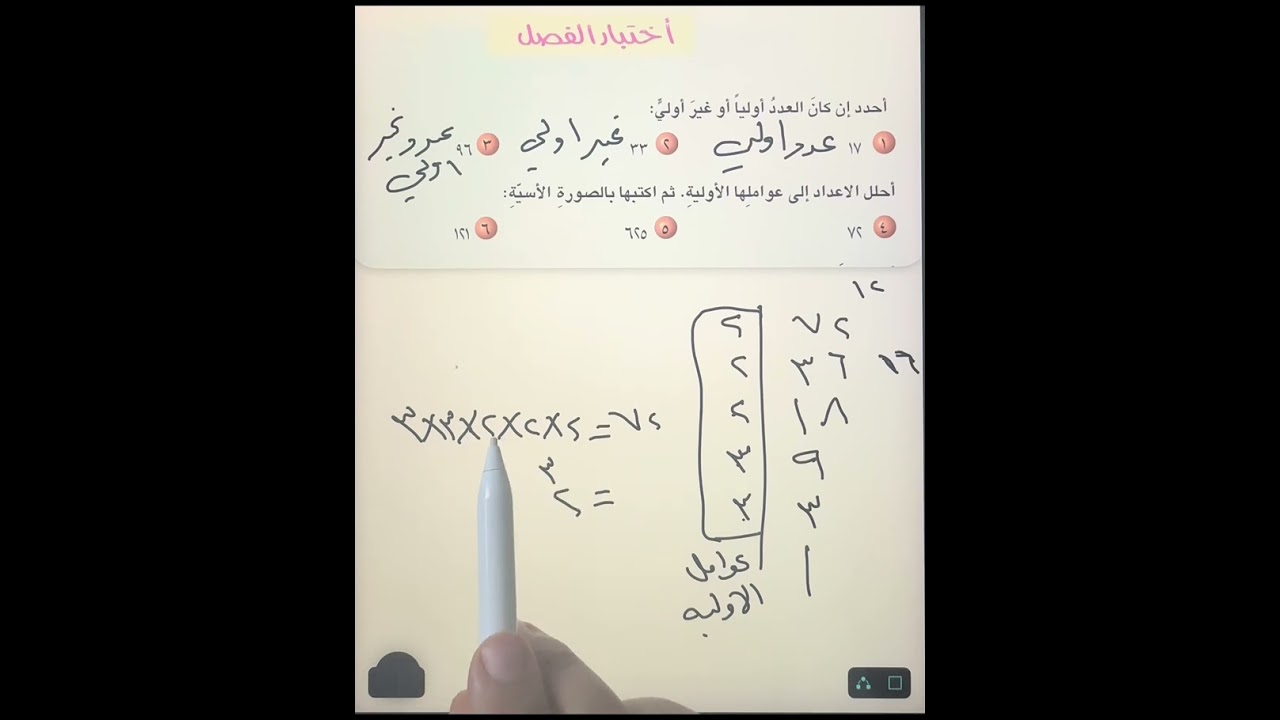 أختبار الفصل
أحدد إن كانَ العددُ أولياً أو غيرَ أوليٍّ:
١ ١٧ عدد اولي ٢ ٣٣ غير اولي ٣ ٩٦ عدد غير
اولي
أحلل الاعداد إلى عواملِها الأوليةِ. ثم اكتبها بالصورةِ الأسيّةِ:
٤ ٧٢ ٥ ٦٢٥ ٦ ١٢١
١٢
٧٢ ٢
١٦ ٣٦ ٢
١٨ ٢
٩ ٣
٣ ٣
١
عوامل
الاوليه
٧٢ = ٢×٢×٢×٣×٣
= ٢٣